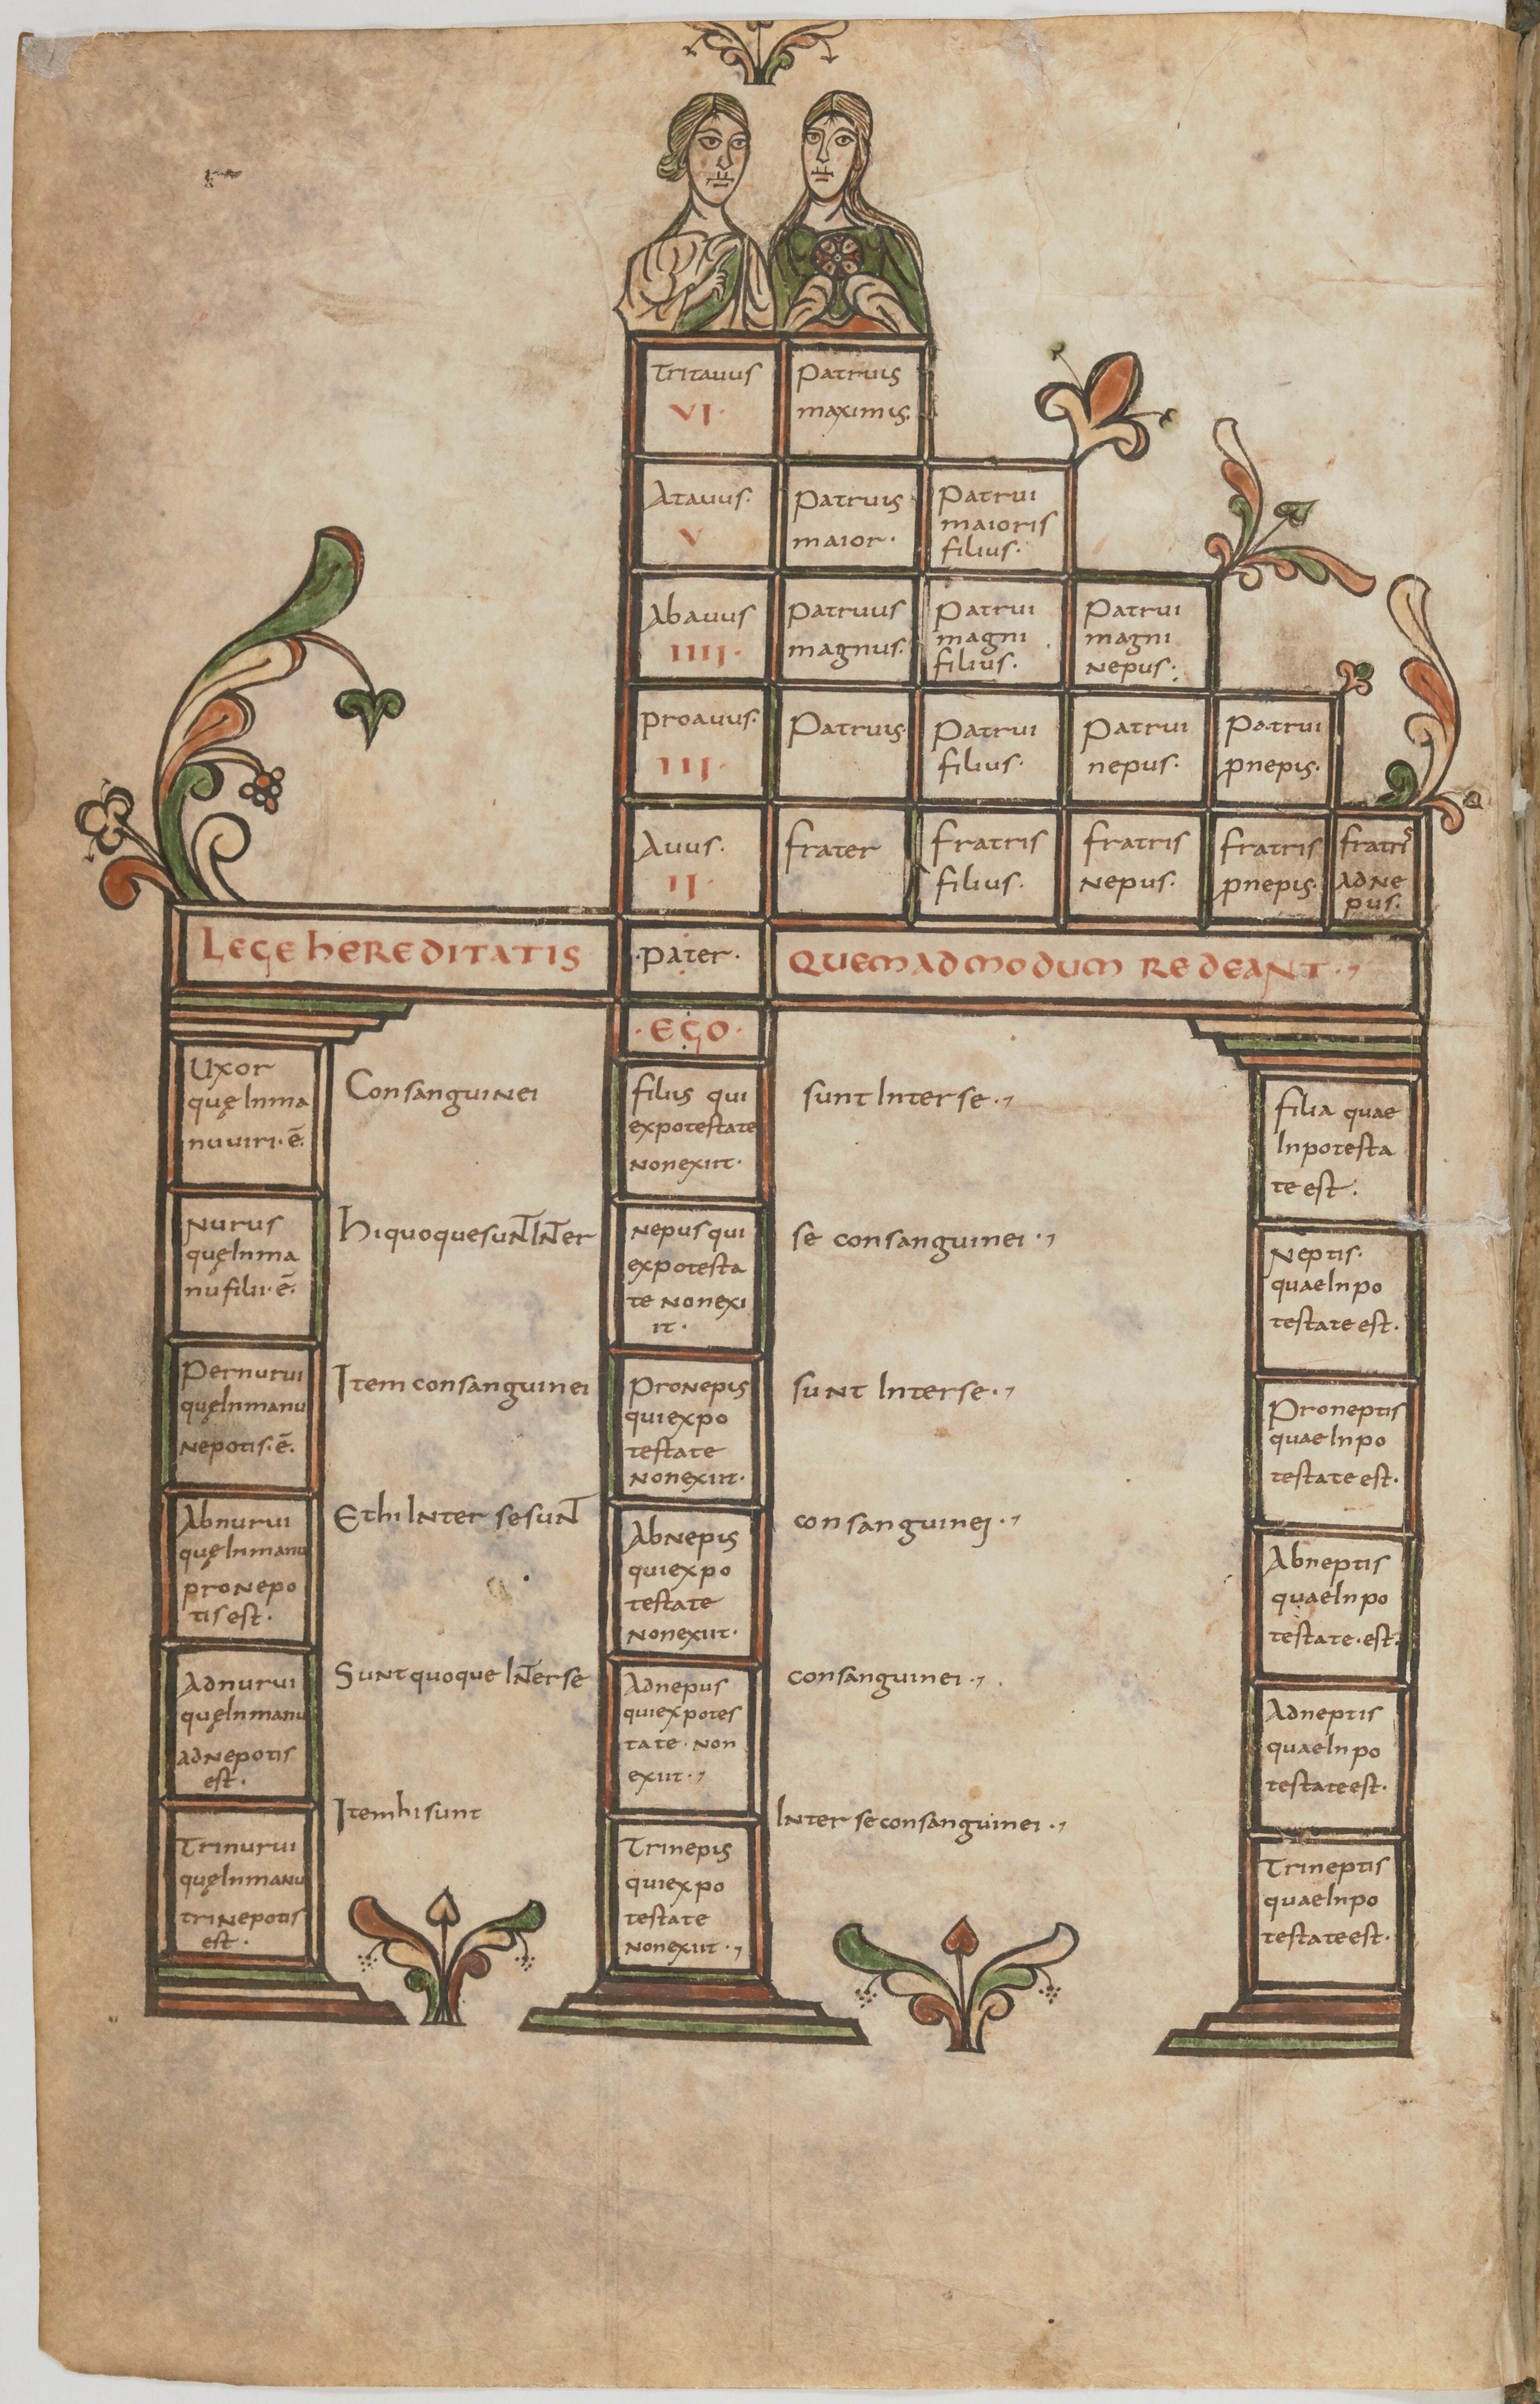 Tritauus
VI·
Patruus
maximus·
Atauus·
V
Patruus
maior·
Patrui
maioris
filius·
Abauus
IIII·
Patruus
magnus·
Patrui
magni
filius·
Patrui
magni
nepus·
Proauus·
III·
Patruus·
Patrui
filius·
Patrui
nepus·
Patrui
pnepus·
Auus·
II·
Frater
Fratris
filius·
Fratris
nepus·
Fratris
pnepus·
Fratris
adne
pus·
LEGE HEREDITATIS
·Pater·
QUEMADMODUM REDEANT·,
·EGO·
Uxor
quę Inma
nuuiri·ē·
Consanguinei
filius qui
expotestate
nonexiit·
sunt Interse·,
filia quae
Inpotesta
te est·
Nurus
quę Inma
nufilii·ē·
hiquoquesunt Inter
Nepus qui
expotesta
te nonexi
it·
se consanguinei·,
Neptis·
quae Inpo
testate est·
Pernurui
quę Inmanu
nepotis·ē·
Item consanguinei
Pronepus
quiexpo
testate
nonexiit·
sunt Interse·,
Proneptis
quae Inpo
testate est·
Abnurui
quę Inmanu
pronepo
tis est·
Ethi Inter sesunt
Abnepus
quiexpo
testate
nonexiit·
consanguinei·,
Abneptis
quae Inpo
testate·est·
Adnurui
quę Inmanu
adnepotis
est·
Suntquoque Interse
Adnepus
quiexpotes
tate· non
exiit·,
consanguinei·,
Adneptis
quae Inpo
testateest·
Trinurui
quę Inmanu
trinepotis
est·
Itemhisunt
Trinepus
quiexpo
testate
nonexiit·,
Inter seconsanguinei·,
Trineptis
quae Inpo
testateest·